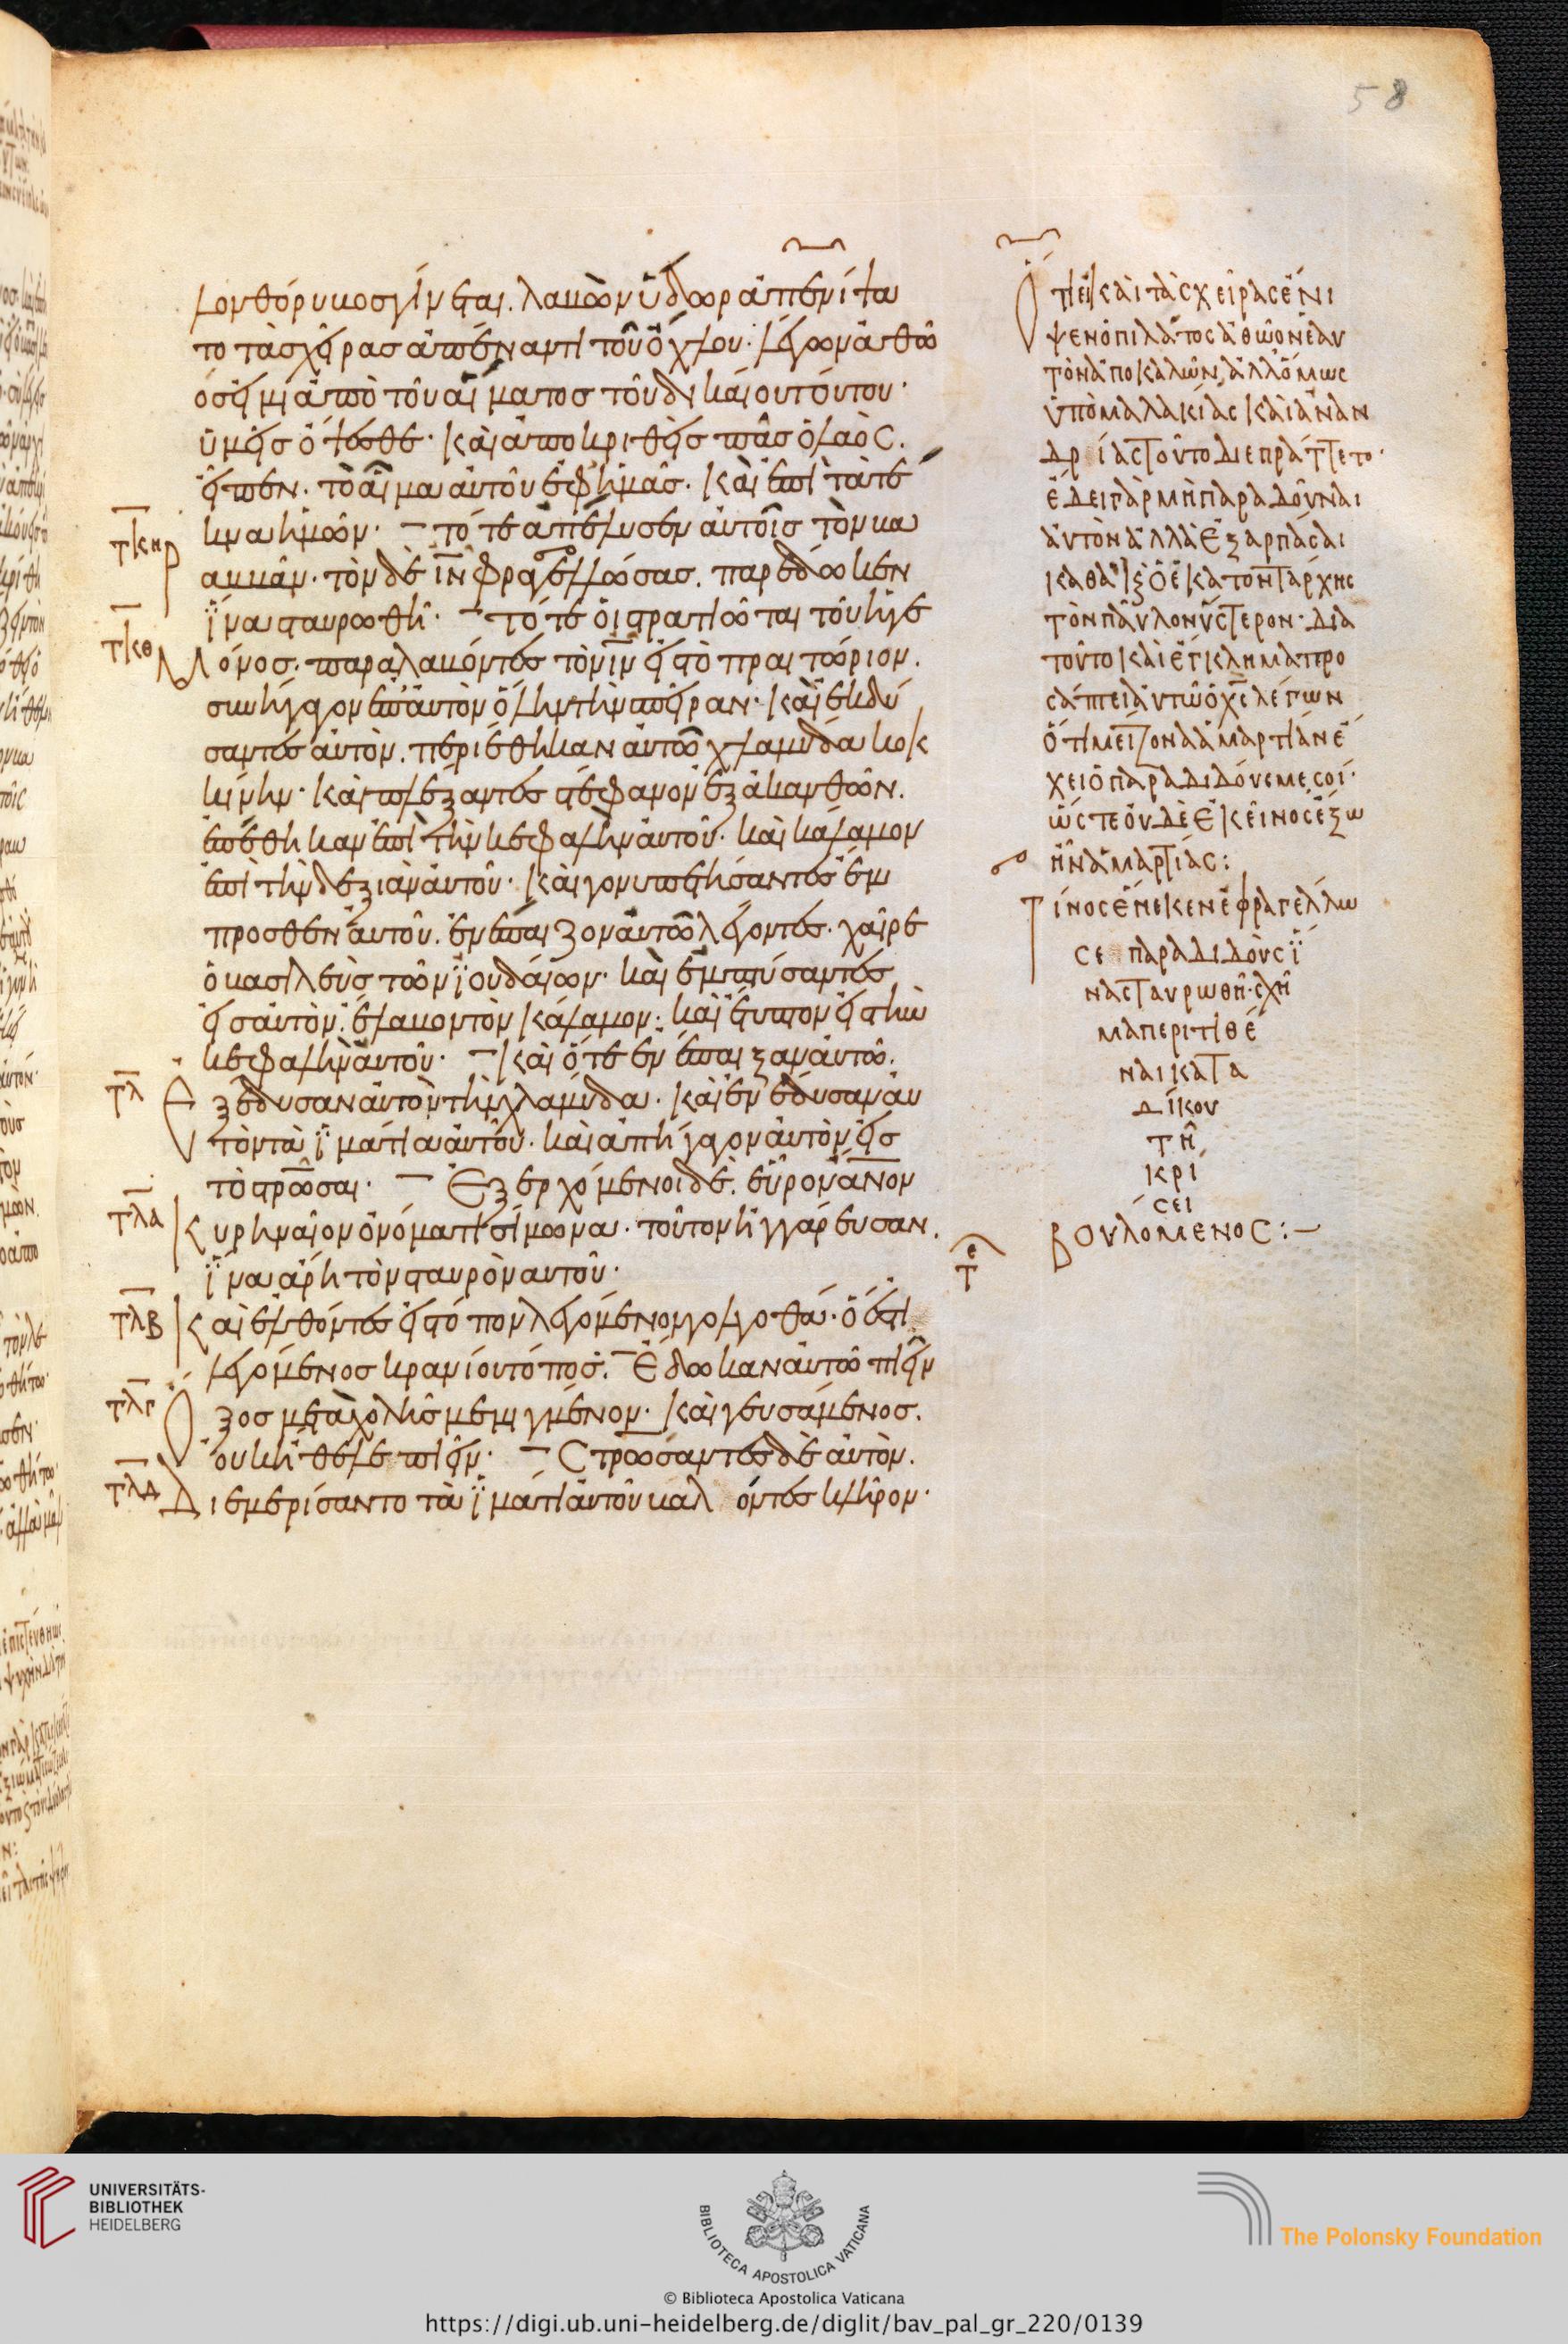 58
λον θόρυβος γίνεται. λαβὼν ὕδωρ ἀπενίψα
το τὰς χεῖρας ἀπέναντι τοῦ ὄχλου· λέγων ἀθῶ
ός εἰμι ἀπὸ τοῦ αἵματος τοῦ δικαίου τούτου·
ὑμεῖς ὄψεσθε· καὶ ἀποκριθεὶς πᾶς ὁ λαὸς.
εἶπεν· τὸ αἷμα αὐτοῦ ἐφ' ἡμᾶς· καὶ ἐπὶ τὰ τέ
κνα ἡμῶν· – τότε ἀπέλυσεν αὐτοῖς τὸν βα
τκη ραββᾶν· τὸν δὲ ῑν̄ φραγελλώσας. παρέδωκεν
ἵνα σταυρωθῆ· – τότε οἱ στρατιῶται τοῦ ἡγε
τκθ Μόνος· παραλαβόντες τὸν ῑν̄ εἰς τὸ πραιτώριον.
συνήγαγον ἐπ' αὐτὸν ὅλην τὴν σπεῖραν· καὶ ἐκδύ
σαντες αὐτὸν. περιέθηκαν αὐτῶ χλαμύδα κοκ
κίνην· καὶ πλέξαντες στέφανον ἐξ ἀκανθῶν.
ἐπέθηκαν ἐπὶ τὴν κεφαλὴν αὐτοῦ· καὶ κάλαμον
ἐπὶ τὴν δεξιὰν αὐτοῦ· καὶ γονυπετήσαντες ἔμ
προσθεν αὐτοῦ. ἐνέπαιζον αὐτῶ λέγοντες· χαῖρε
ὁ βασιλεὺς τῶν ἰουδαίων· καὶ ἐμπτύσαντες
εἰς αὐτὸν. ἔλαβον τὸν κάλαμον· καὶ ἔτυπτον εἰς τὴν
κεφαλὴν αὐτοῦ· – καὶ ὅτε ἐνέπαιξαν αὐτῶ.
τλ Ἐξέδυσαν αὐτὸν τὴν χλαμύδα· καὶ ἐνέδυσαν αὐ
τὸν τὰ ἱμάτια αὐτοῦ· καὶ ἀπήγαγον αὐτὸν εἰς
τὸ σταυρῶσαι· – Ἐξερχόμενοι δὲ. εὗρον ᾱν̄ον
τλα Κυρηναῖον ὀνόματι σίμωνα· τοῦτον ἠγγάρευσαν.
ἵνα ἄρη τὸν σταυρὸν αὐτοῦ·
τλβ Καὶ ἐλθόντες εἰς τόπον λεγόμενον γολγοθᾶ· ὅ ἐστι
λεγόμενος κρανίου τόπος. – Ἔδωκαν αὐτῶ πιεῖν
τλγ Ὄξος μετὰ χολῆς μεμιγμένον· καὶ γευσάμενος.
οὐκ ἤθελε πιεῖν· – Σταυρώσαντες δὲ αὐτὸν.
τλδ Διεμερίσαντο τὰ ἱμάτια αὐτοῦ βαλόντες κλῆρον·
Ὅτι εἰ καὶ τὰς χεῖρας ἐνί
ψεν ὁ πιλάτος ἀθῶον ἑαυ
τὸν ἀποκαλῶν, ἀλλ' ὅμως
ὑπὸ μαλακίας καὶ ἀναν
δρίας τοῦτο διεπράττετο·
ἔδει γὰρ μὴ παραδοῦναι
αὐτὸν ἀλλὰ ἐξαρπάσαι
καθὰ καὶ ὁ ἑκατοντάρχης
τὸν παῦλον ὕστερον· διὰ
τοῦτο καὶ ἔγκλημα προ
σάπτει αὐτῶ ὁ χ̄ς λέγων
ὅτι μείζονα ἁμαρτίαν ἔ
χει ὁ παραδιδούς με σοί·
ὥστε οὐδὲ ἐκεῖνος ἔξω
ἦν ἁμαρτίας:
Τίνος ἕνεκεν ἐφραγέλλω
σε παραδιδοὺς ἵ
να σταυρωθῆ· σχῆ
μα περιτιθέ
ναι κατα
δίκου
τῆ
κρί
σει
βουλόμενος:–
UNIVERSITÄTS-
BIBLIOTHEK
HEIDELBERG
BIBLIOTECA APOSTOLICA VATICANA
The Polonsky Foundation
© Biblioteca Apostolica Vaticana
https://digi.ub.uni-heidelberg.de/diglit/bav_pal_gr_220/0139